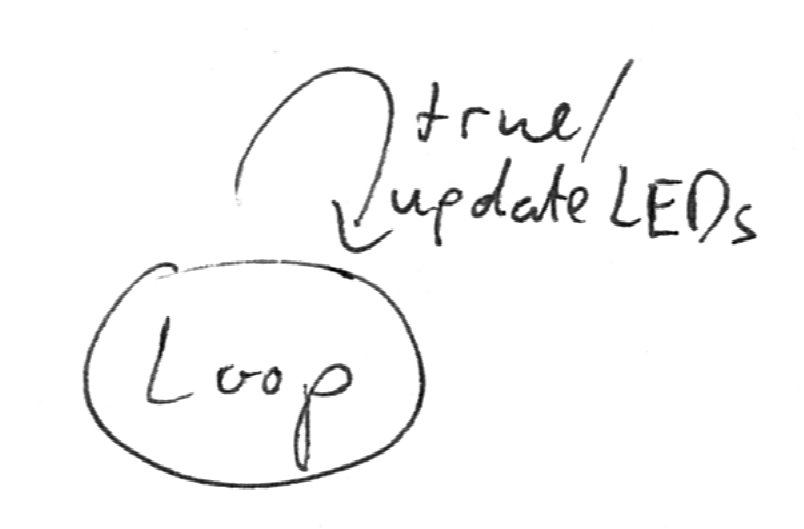 true/
updateLEDs
Loop